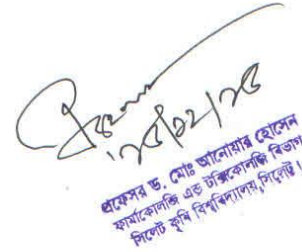 ১৫/১২/১৫
প্রফেসর ড. মোঃ আনোয়ার হোসেন
ফার্মাকোলজি এন্ড টক্সিকোলজি বিভাগ
সিলেট কৃষি বিশ্ববিদ্যালয়, সিলেট।